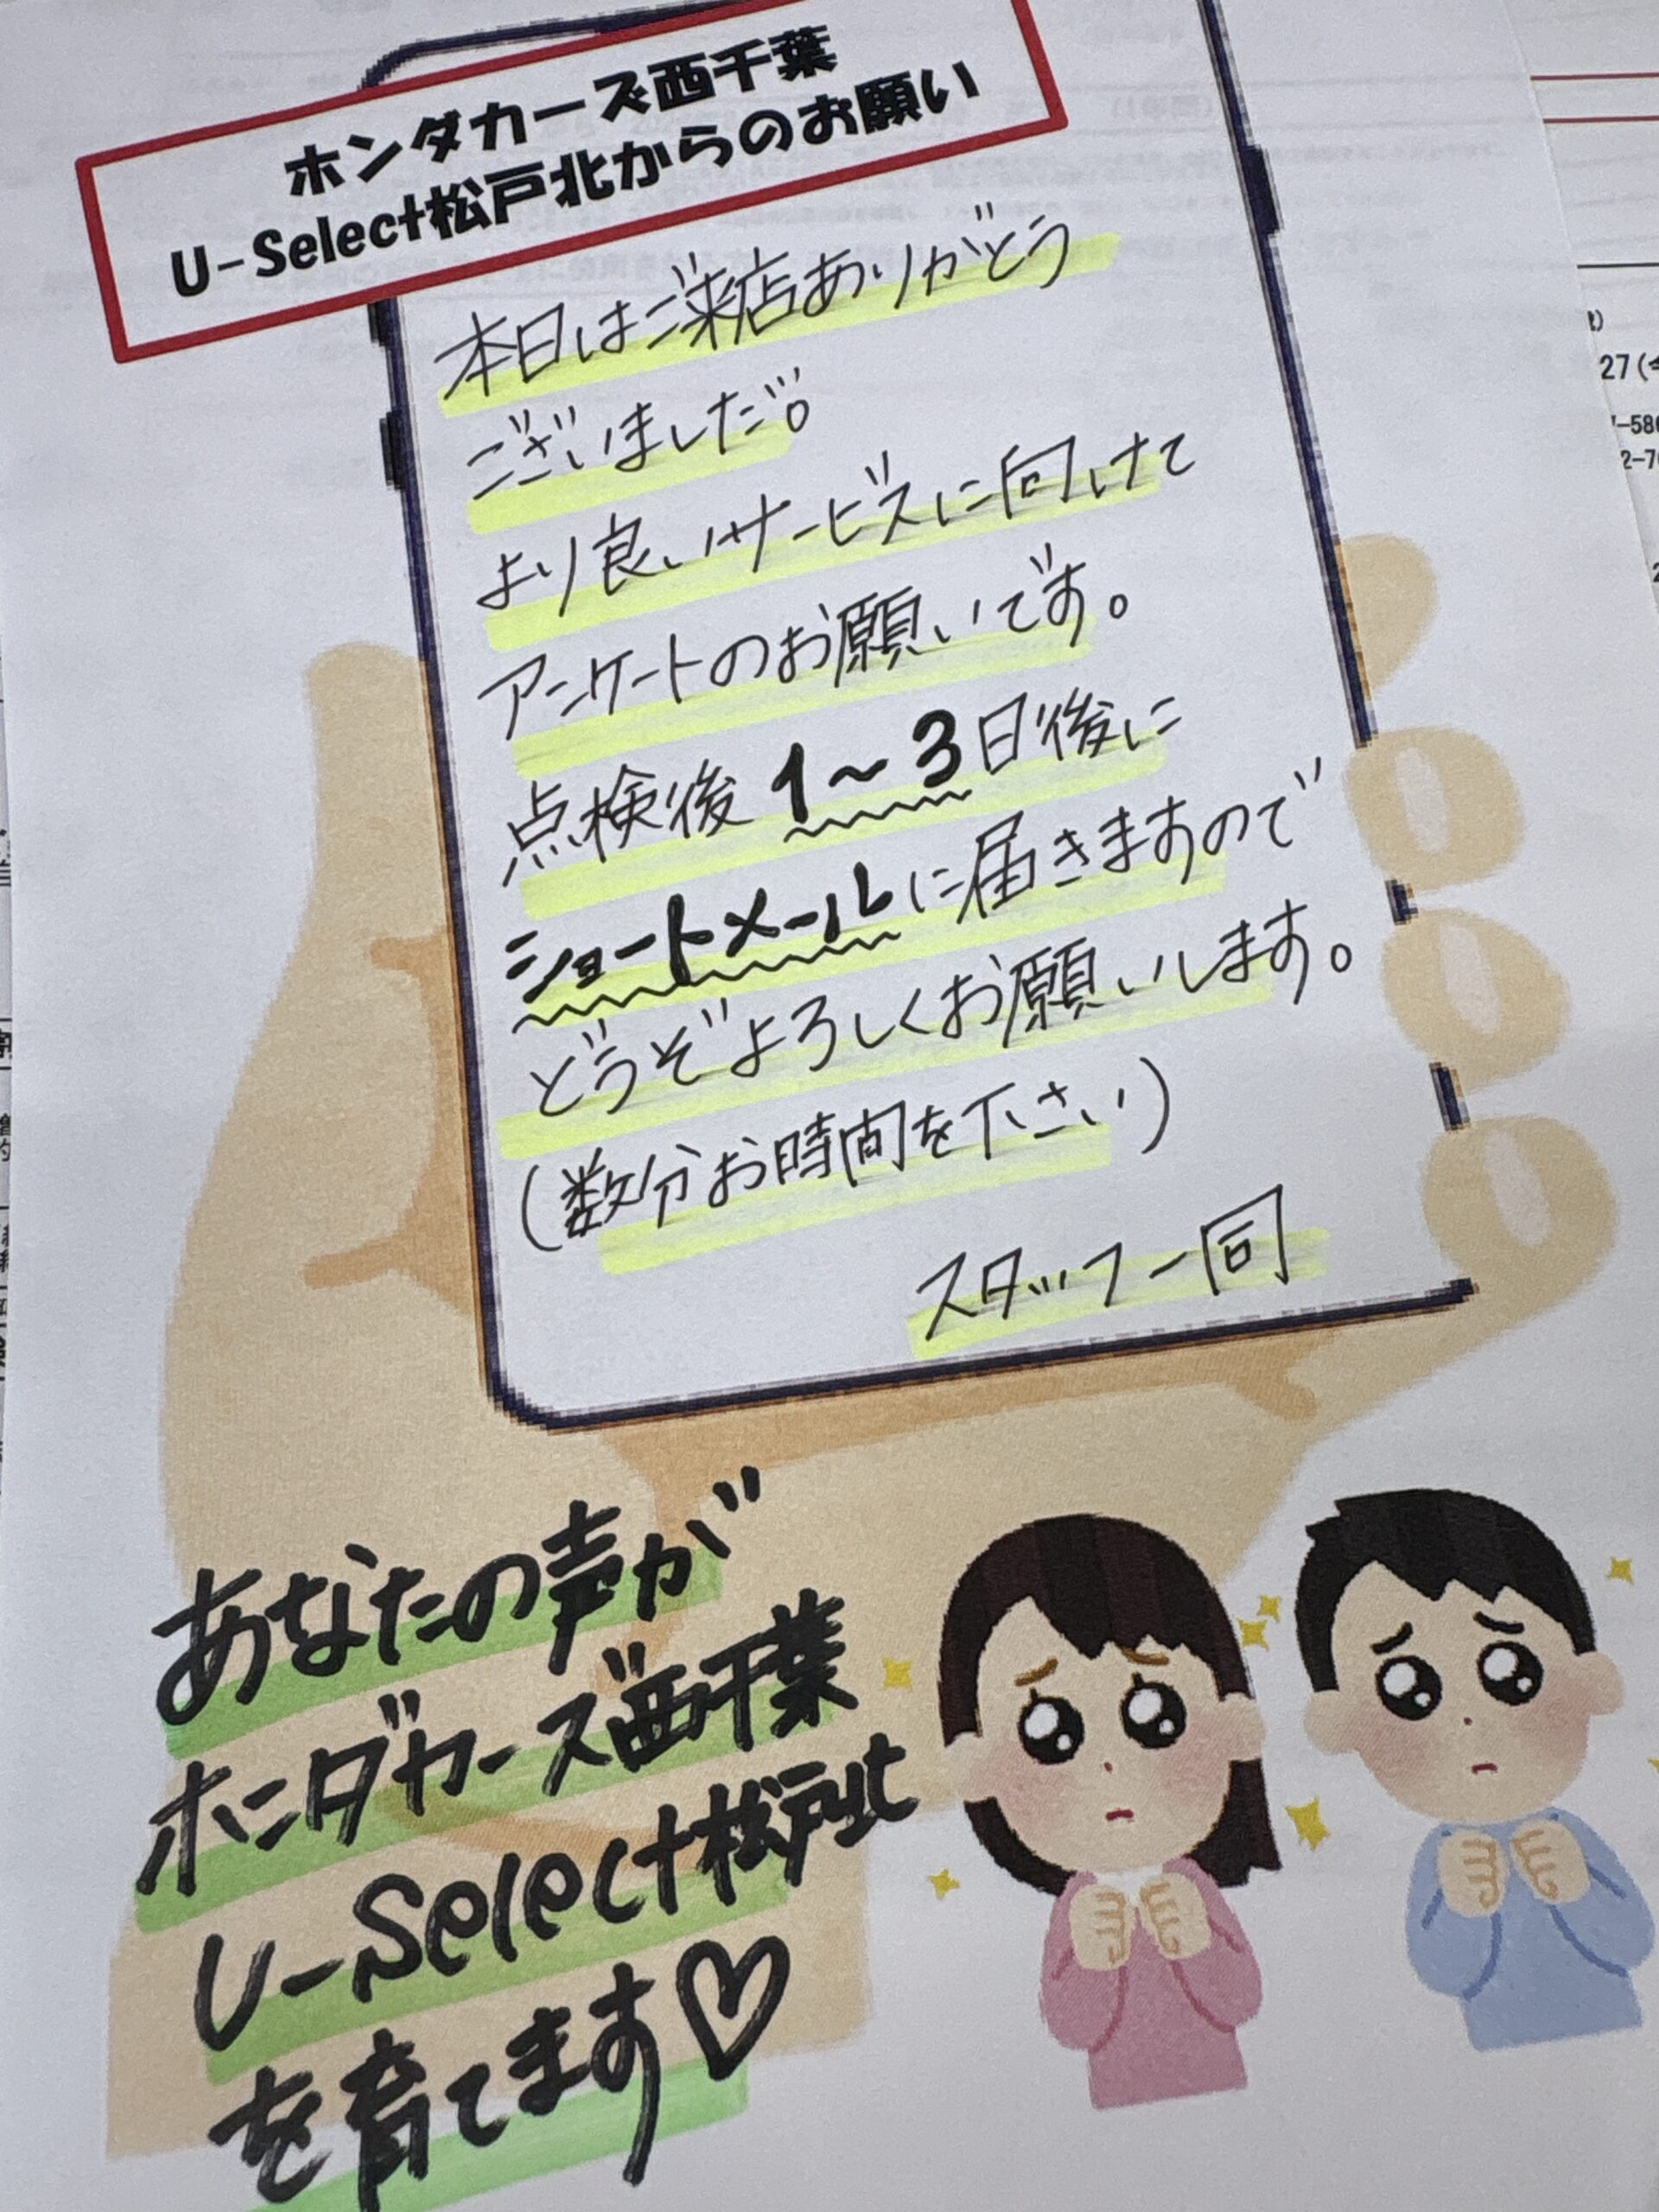 ホンダカーズ西千葉
U-Select松戸北からのお願い
本日はご来店ありがとう
ございました。
より良いサービスに向けて
アンケートのお願いです。
点検後 1～3日後に
ショートメールに届きますので
どうぞよろしくお願いします。
(数分お時間を下さい)
スタッフ一同
あなたの声が
ホンダカーズ西千葉
U-Select松戸北
を育てます♡
27(